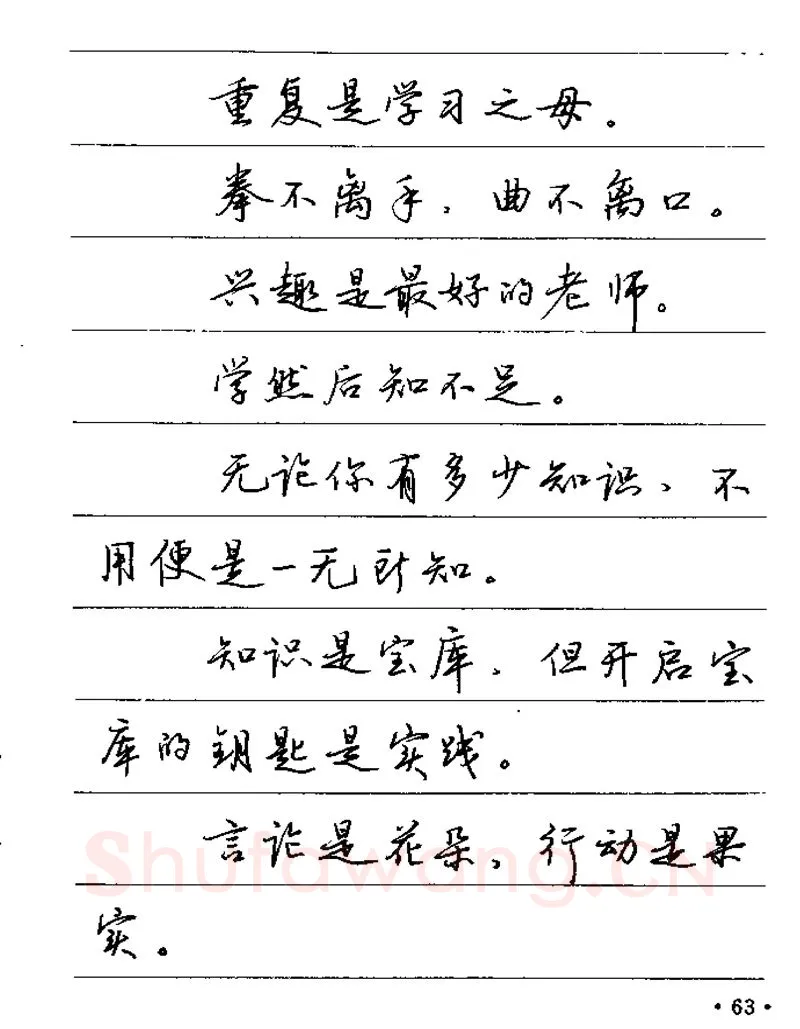 重复是学习之母。
拳不离手，曲不离口。
兴趣是最好的老师。
学然后知不足。
无论你有多少知识，不
用便是一无所知。
知识是宝库，但开启宝
库的钥匙是实践。
言论是花朵，行动是果
实。
Shufawang.CN
·63·